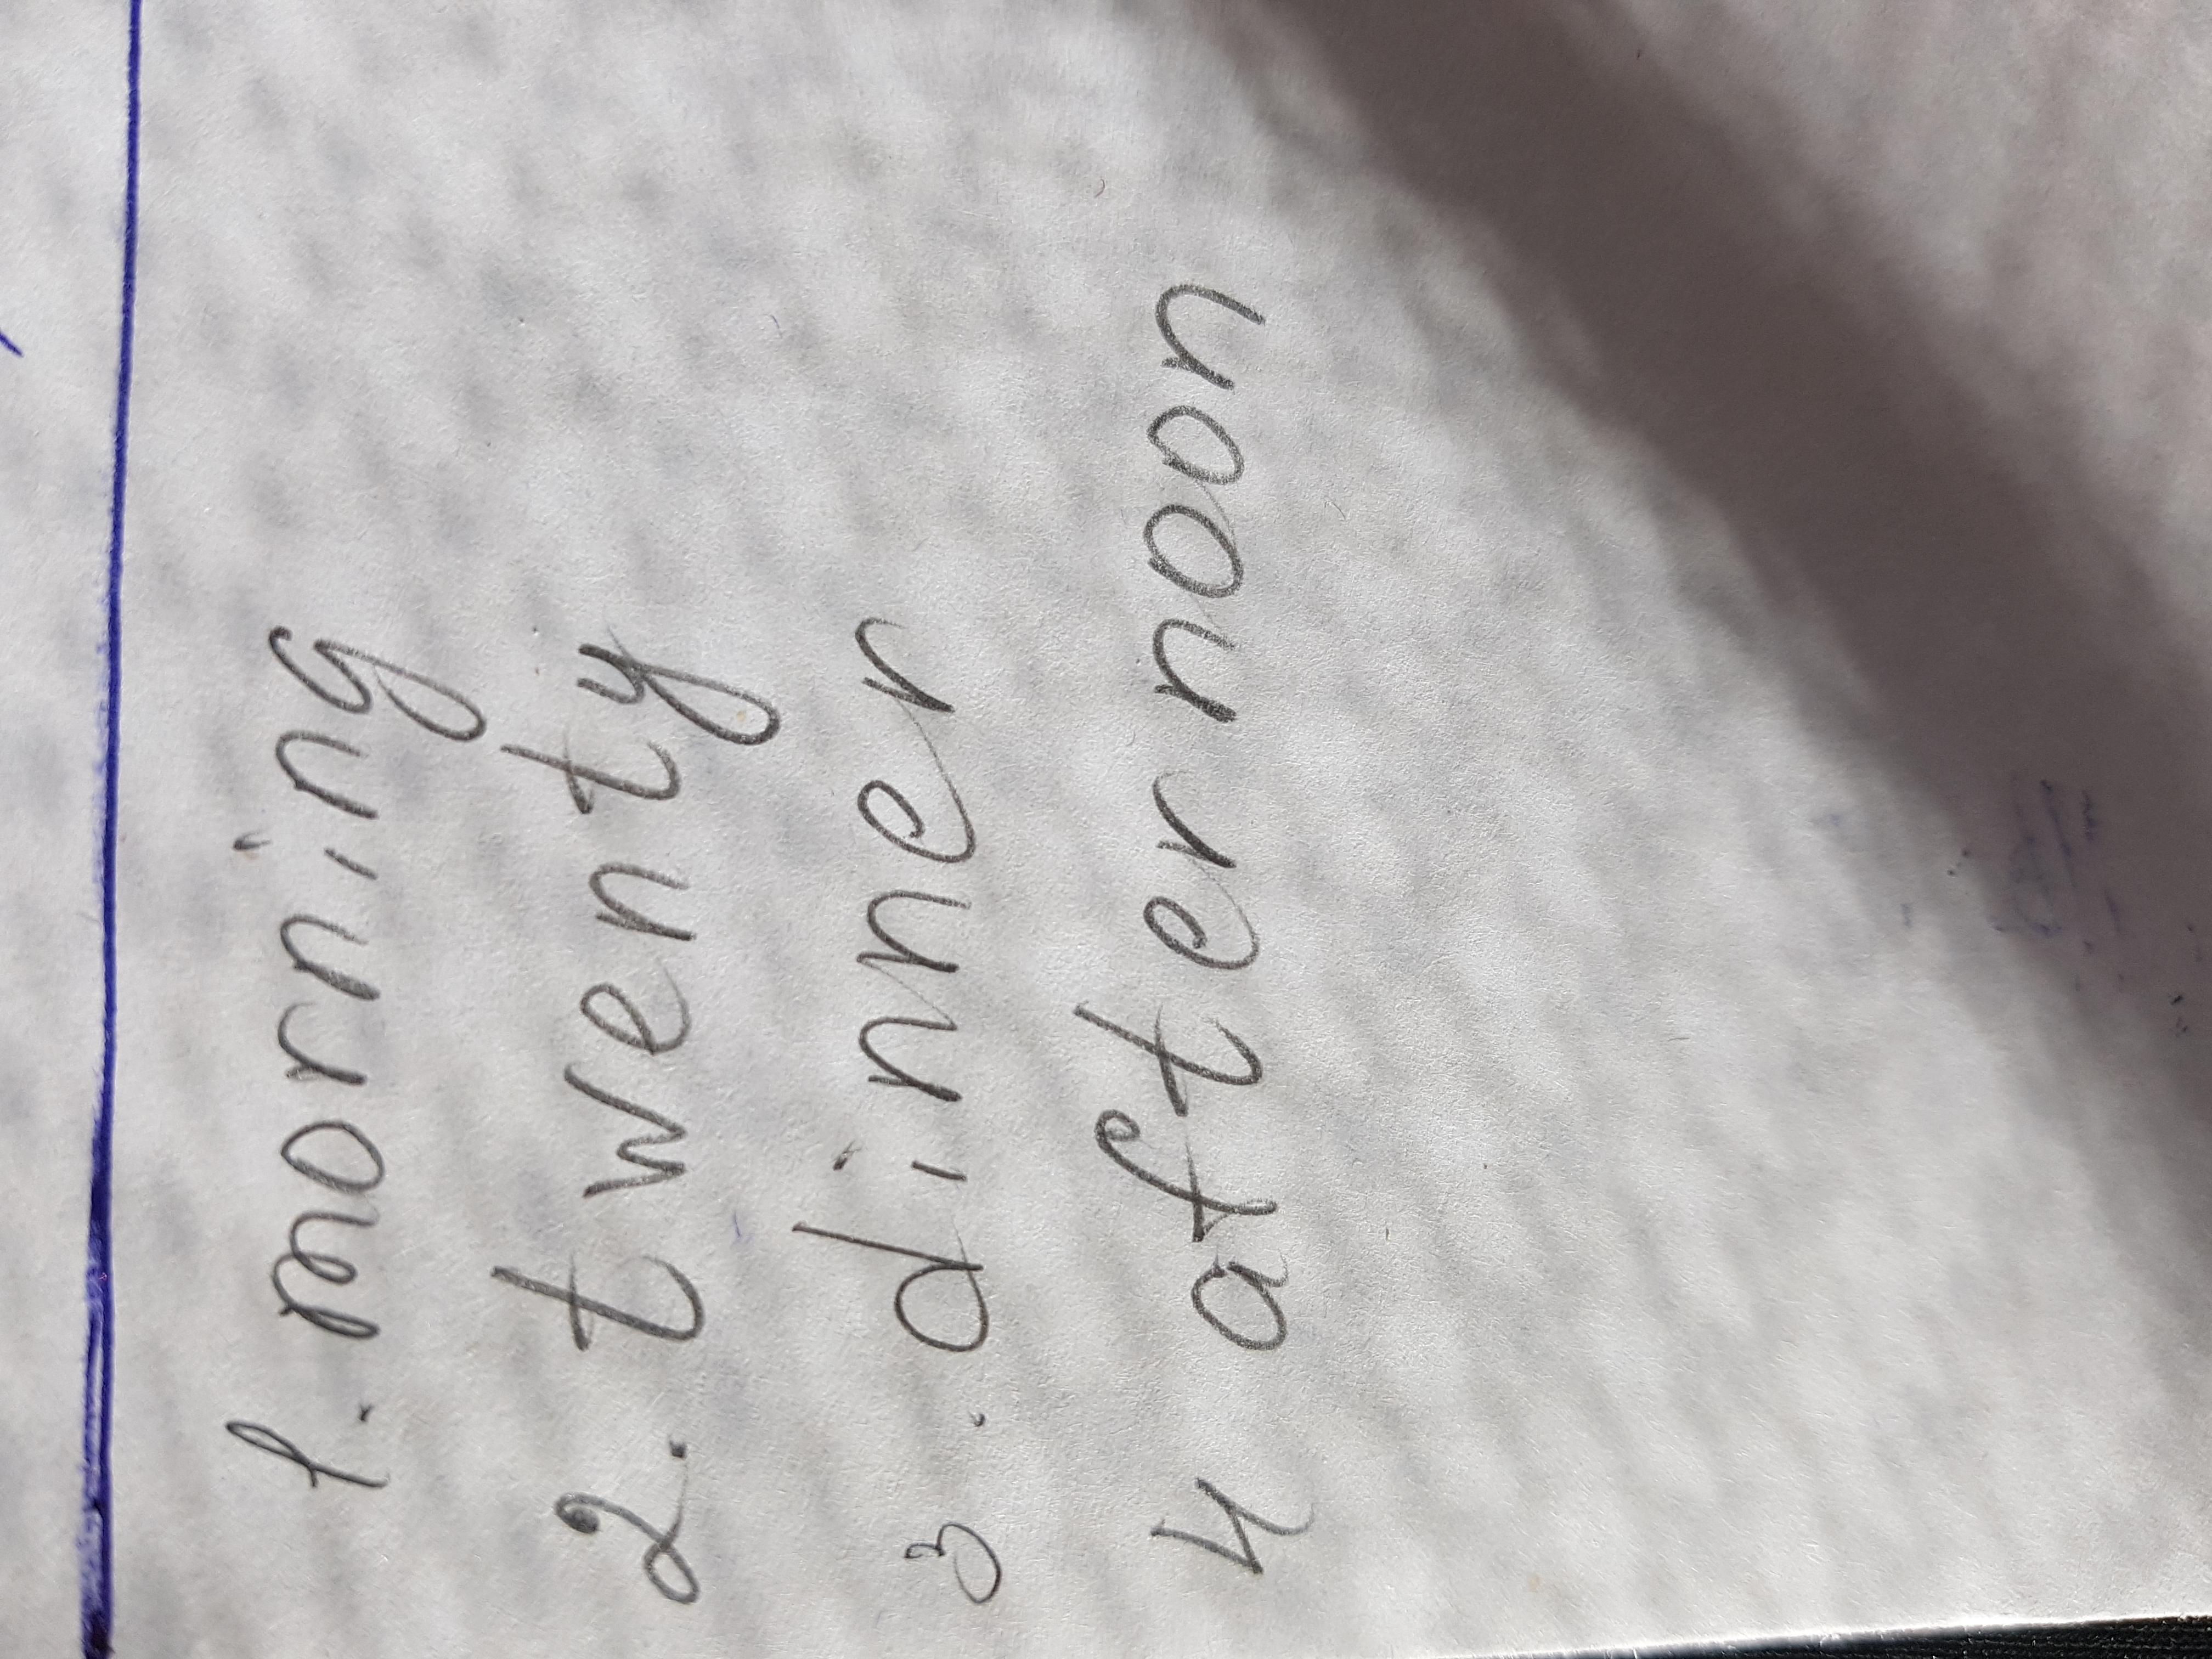 1. morning
2. twenty
3. dinner
4 afternoon